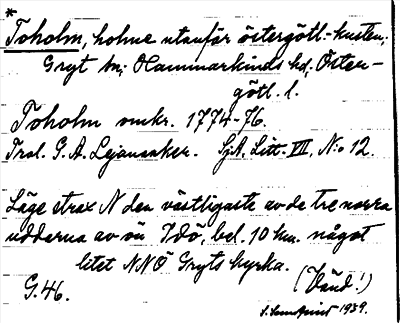 *
Toholm, holme utanför östergötl-kusten;
Gryt sn; Hammarkinds hd, Öster-
götl. l.
Toholm omkr. 1774-76.
Tral. G. A. Lejonanker. Sj.A, Litt. VII, No 12.
Läge strax N den västligaste av de tre norra
uddarna av ön Idö, bel. 10 km. något
litet NNÖ Gryts kyrka.
(Vänd!)
G.46.
1939.